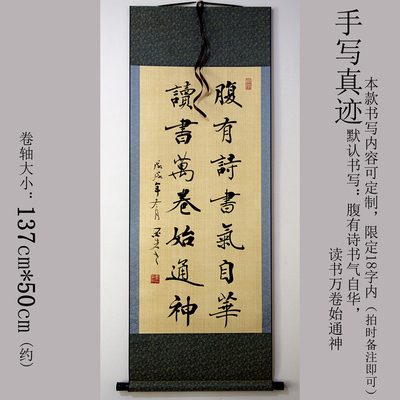 手写真迹
本款书写内容可定制，限定18字内（拍时备注即可）
默认书写：腹有诗书气自华，
读书万卷始通神
腹有詩書氣自華
讀書萬卷始通神
卷轴大小：137cm*50cm（约）